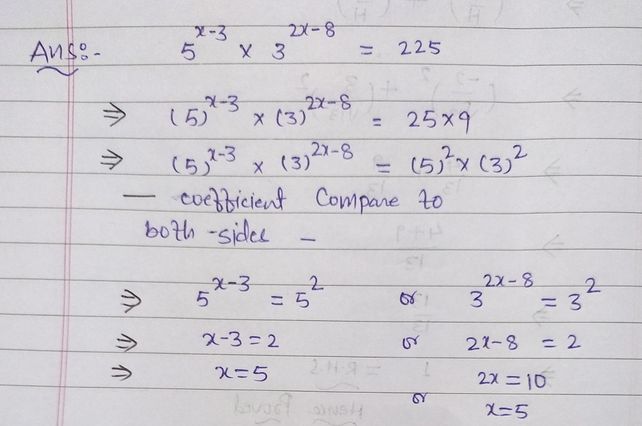 Ans:- 5^{x-3} × 3^{2x-8} = 225
⇒ (5)^{x-3} × (3)^{2x-8} = 25×9
⇒ (5)^{x-3} × (3)^{2x-8} = (5)^2 × (3)^2
— coefficient Compare to
both-sides —
⇒ 5^{x-3} = 5^2 or 3^{2x-8} = 3^2
⇒ x-3=2 or 2x-8 = 2
⇒ x=5 2x=10
or x=5